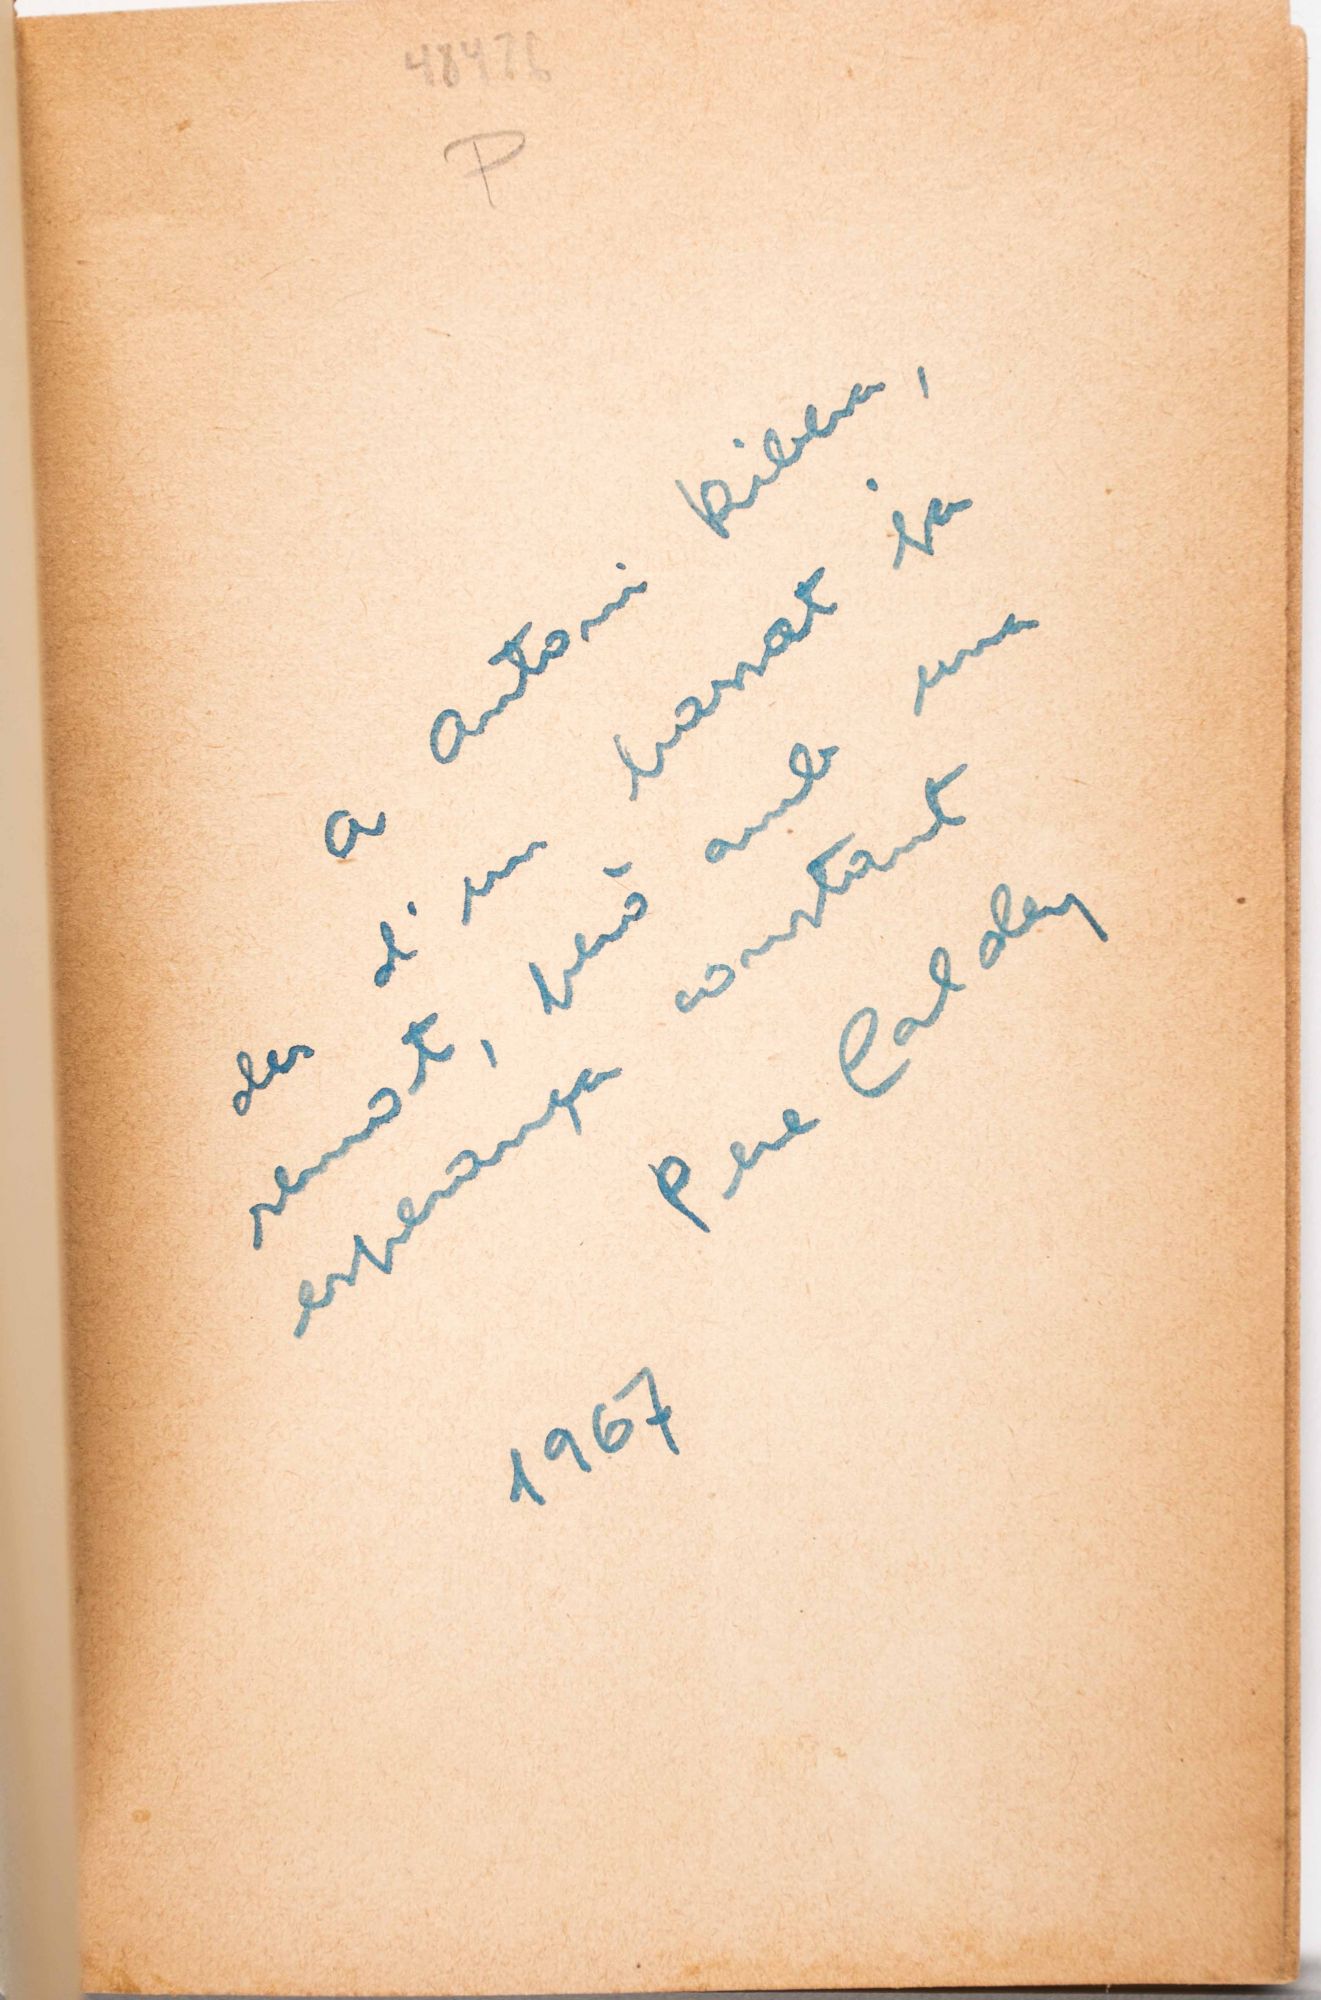 48476
P
a Antoni Ribera,
des d'un passat ja
remot, però amb una
esperança constant
Pere Calders
1967